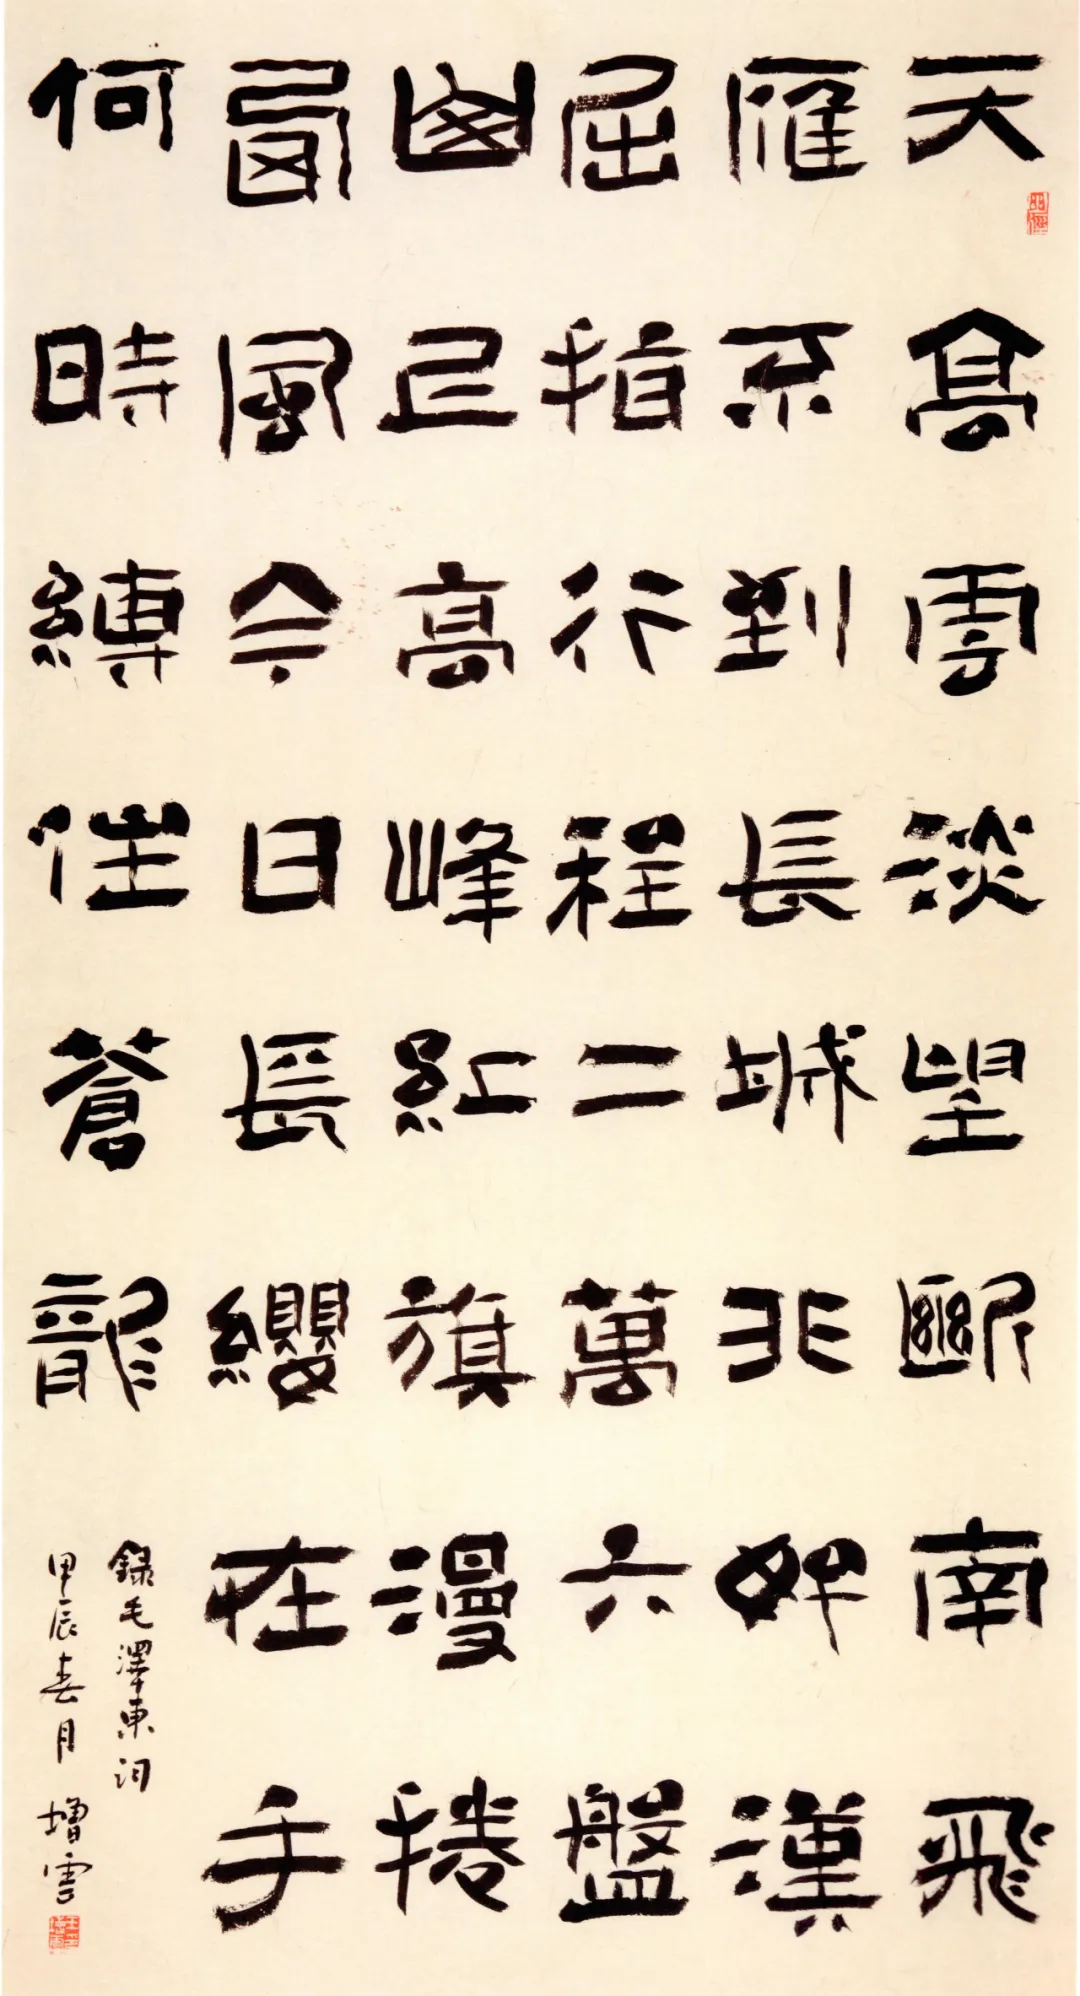 天高雲淡望斷南飛
雁不到長城非好漢
屈指行程二萬六盤
山上高峰紅旗漫捲
西風今日長纓在手
何時縛住蒼龍
錄毛澤東詞
甲辰春月 增雪